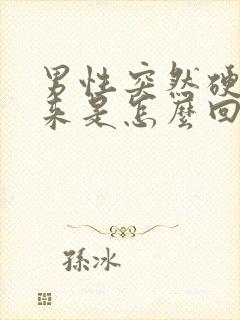 男性突然硬
来是怎麼回
孫冰